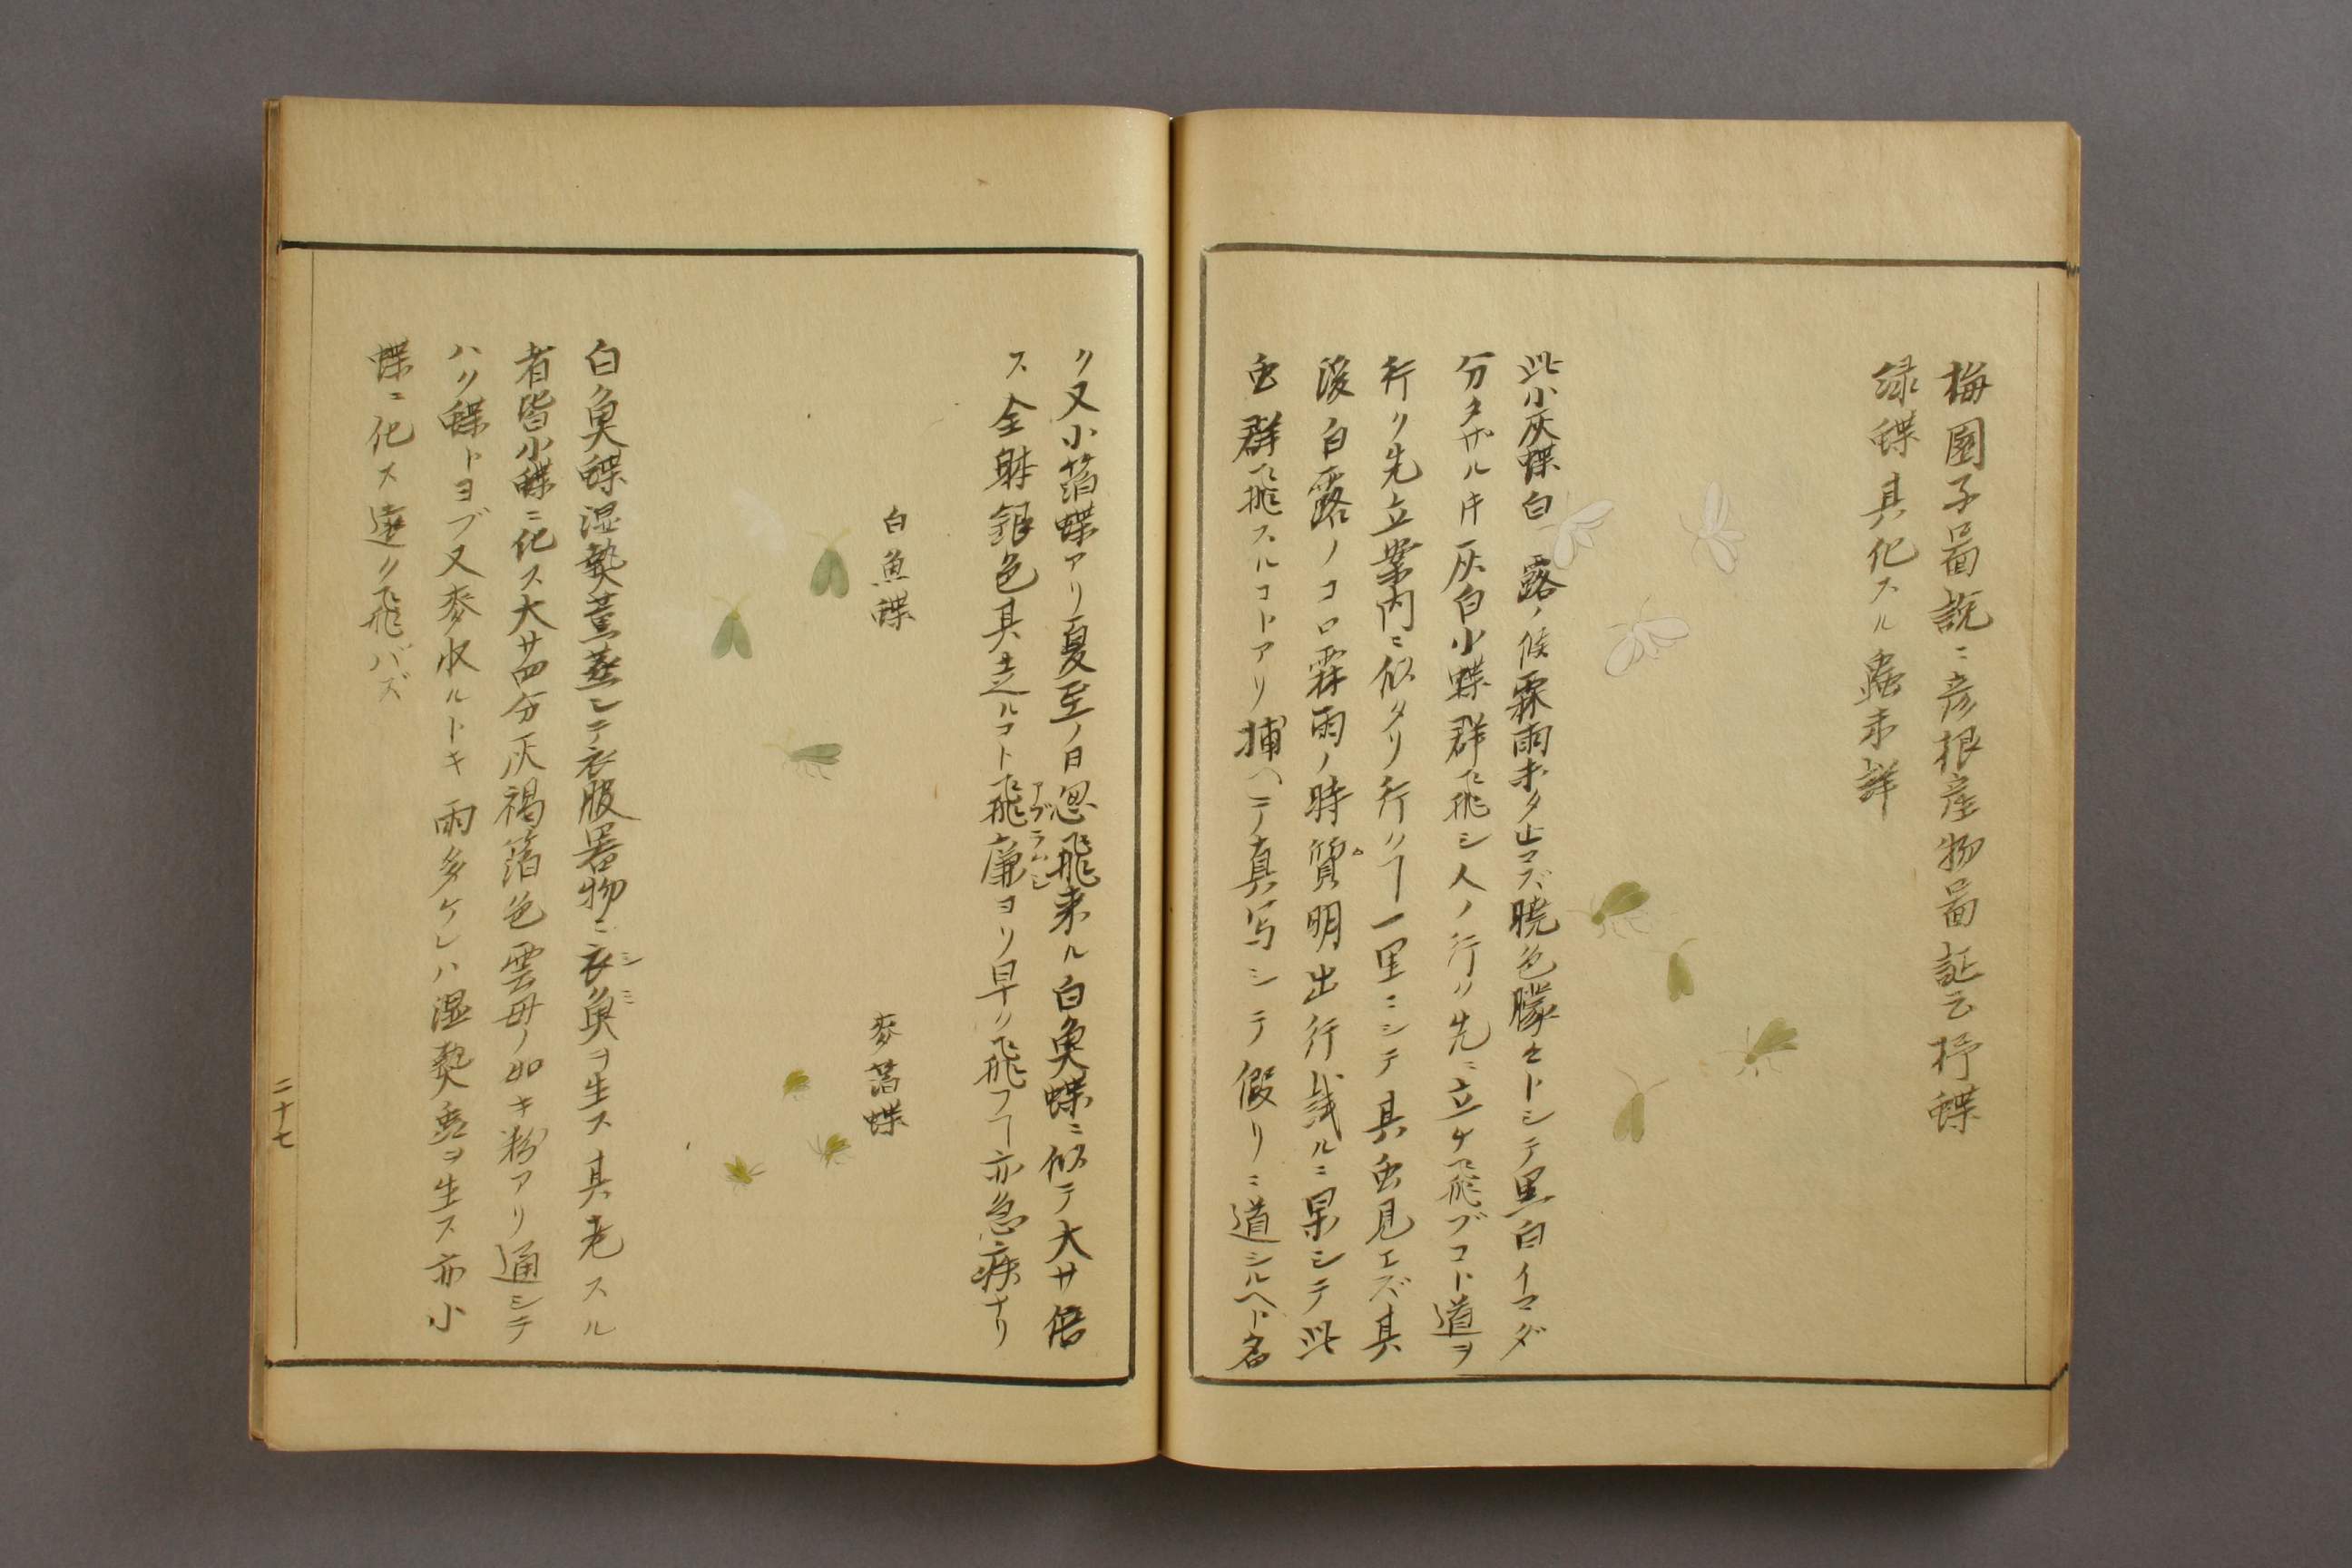 梅園子啚説ニ彦根産物啚証云杼蝶
緑蝶其化スル蟲未詳
此小灰蝶白露ノ候霖雨未タ止マズ暁色朦々トシテ黒白イマダ
分タザル牛灰白小蝶群飛シ人ノ行ク先ニ立ケ飛ブコト道ヲ
行ク先立案内ニ似タリ行クヿ一里ニシテ其虫見エズ其
後白露ノコロ霖雨ノ時質明出行試ルニ果シテ此
虫群飛スルコトアリ捕ヘテ真写シテ假リニ道シルヘト名
ク又小萡蝶アリ夏至ノ日忽飛来ル白魚蝶ニ似テ大サ倍
ス全躰銀色其走ルコト飛廉ヨリ早ク飛フヿ亦急疾ナリ
アブラムシ
白魚蝶
麥萡蝶
白魚蝶湿熱薫蒸シテ衣服器物ニ衣魚ヲ生ス其老スル
シミ
者皆小蝶ニ化ス大サ四分灰褐萡色雲母ノ如キ粉アリ通シテ
ハク蝶トヨブ又麥収ルトキ雨多ケレハ湿熱蟲ヲ生ス亦小
蝶ニ化ス遠ク飛バズ
二十七